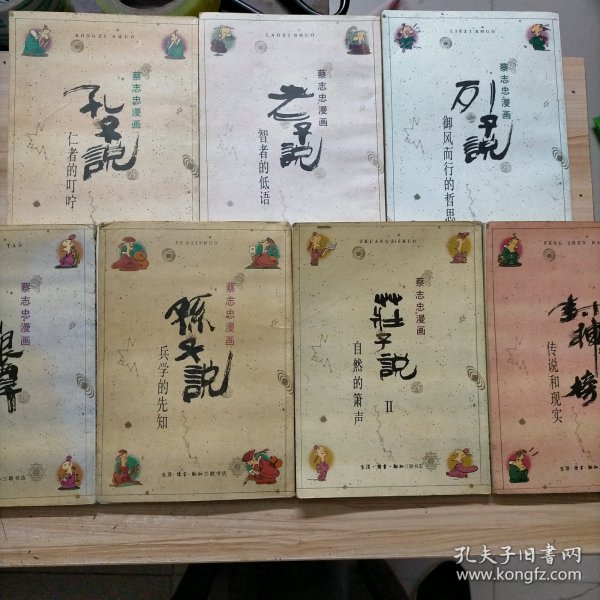 KONGZI SHUO
蔡志忠漫画
孔子説
仁者的叮咛
LAOZI SHUO
蔡志忠漫画
老子説
智者的低语
LIEZI SHUO
蔡志忠漫画
列子説
御风而行的哲思
TAN
蔡志忠漫画
三联书店
SUNZISHUO
蔡志忠漫画
孫子説
兵学的先知
生活·读书·新知三联书店
ZHUANGZISHUO
蔡志忠漫画
莊子説
II
自然的箫声
生活·读书·新知三联书店
FENG SHEN BA
封神榜
传说和现实
生活·读书·新知
孔夫子旧书网
www.kongfz.com